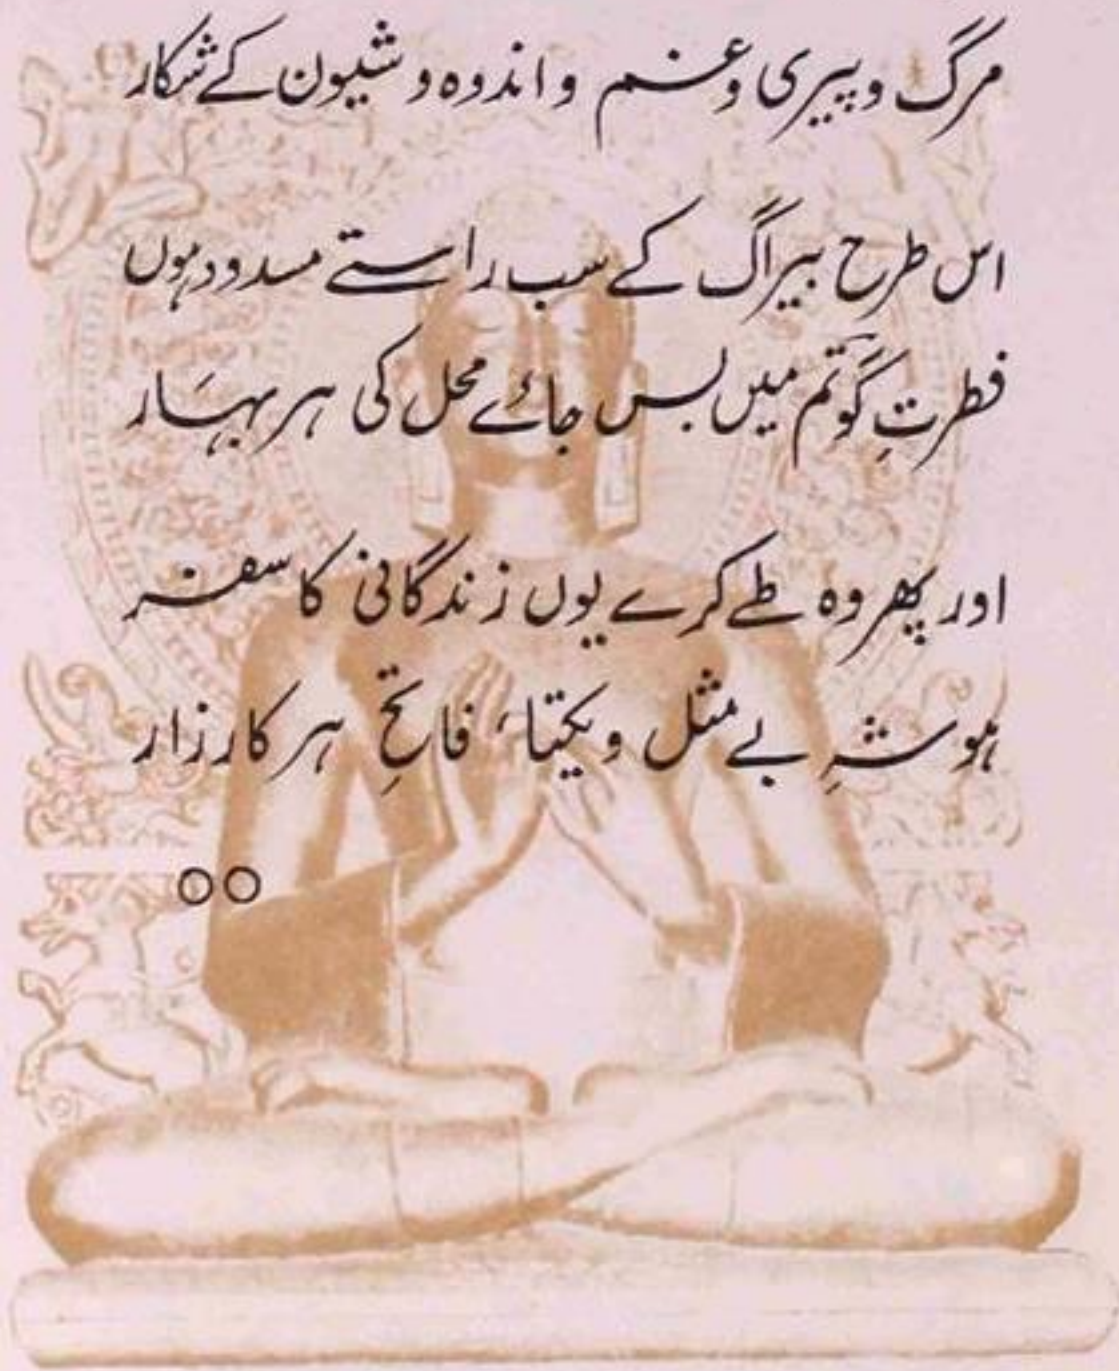 مرگ و پیری و غم و اندوہ و شیون کے شکار
اس طرح بیراگ کے سب راستے مسدود ہوں
فطرتِ گوتم میں بس جائے محل کی ہر بہَار
اور پھر وہ طے کرے یوں زندگانی کا سفر
ہو شہِ بے مثل و یکتا، فاتحِ ہر کارزار
○○